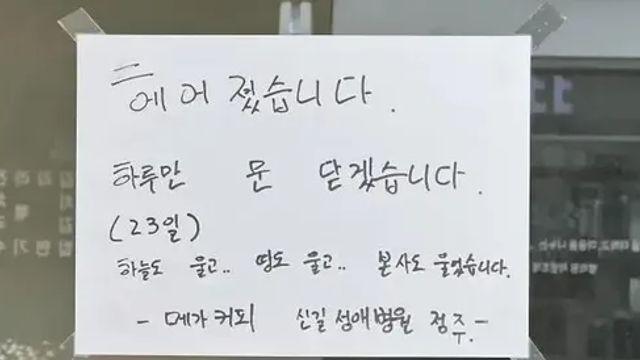 헤어졌습니다.
하루만 문 닫겠습니다.
(23일)
하늘도 울고.. 땅도 울고.. 본사도 울었습니다.
- 메가커피 신길 성애병원 점주. -